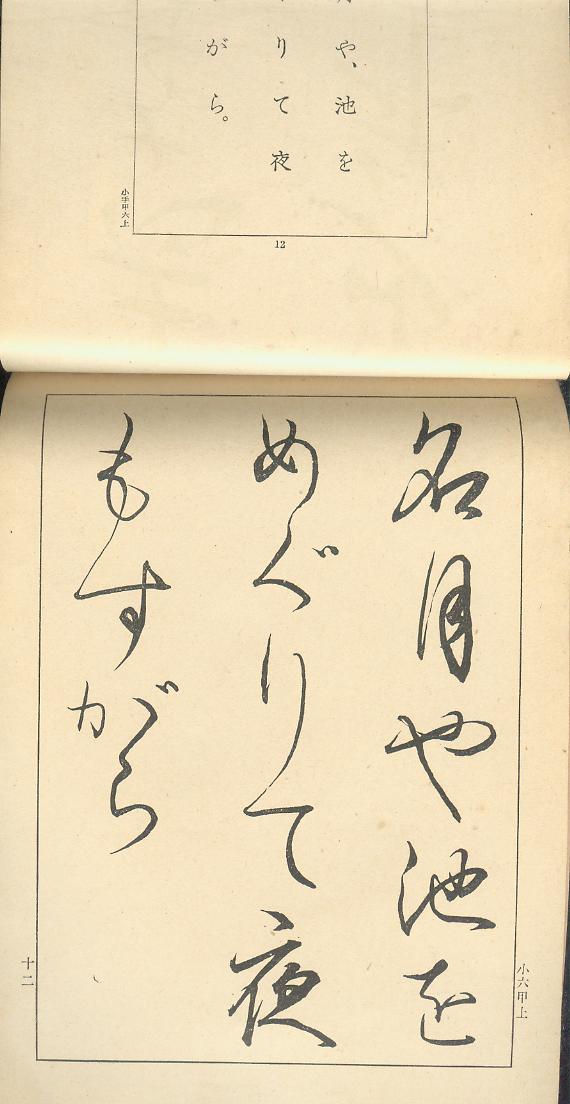 や、池を
りて夜
がら。
小手甲六上
12
小六甲上
名月や池を
めぐりて夜
もすがら
十二